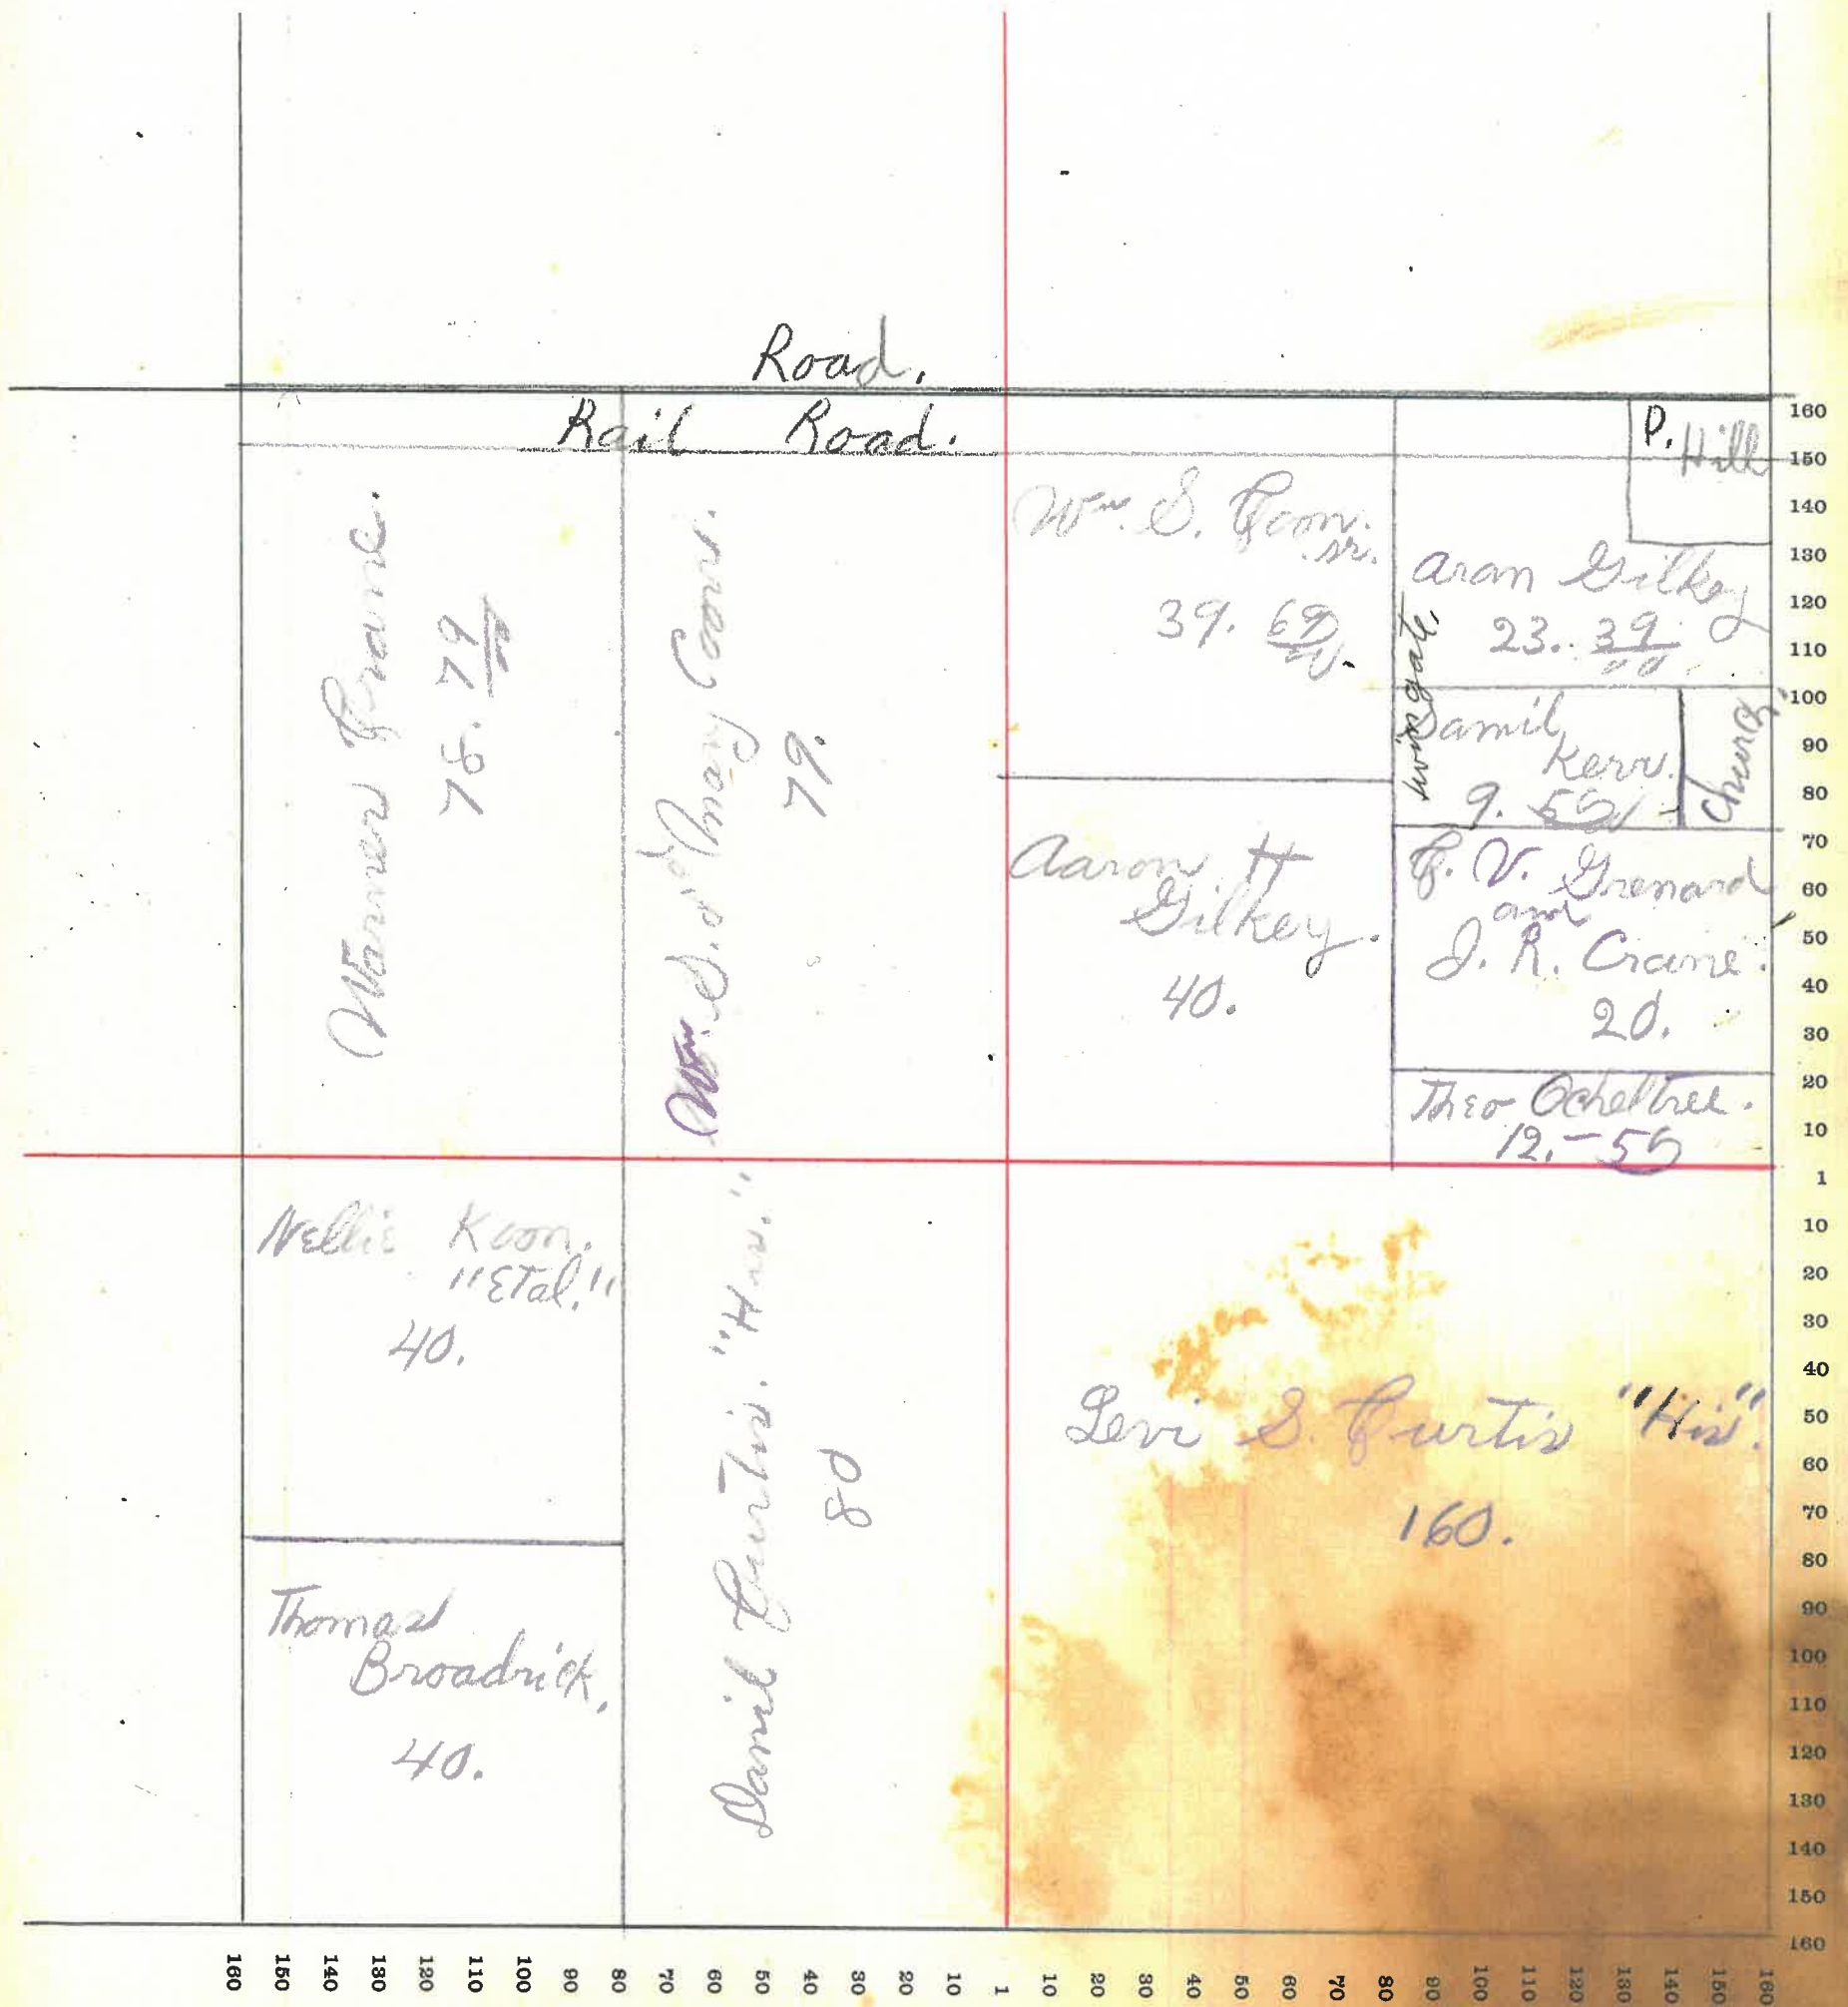 Road.
Rail Road.
P. Hill
Warner Crane.
78. 79
Wm. S. & Mary Coon.
79.
Wm. S. Coon.
sr.
39. 69
Aran Gilkey
23. 39
Samil
Kerr.
9.
Church
Aaron H
Gilkey.
40.
C. V. Grenard
and
J. R. Crane.
20.
Theo Ocheltree.
12.-50
Nellie Koon.
"Etal."
40.
Thomas
Broadrick.
40.
Danil Curtis. "Hir."
80
Levi S. Curtis "Hir".
160.
160
150
140
130
120
110
100
90
80
70
60
50
40
30
20
10
1
10
20
30
40
50
60
70
80
90
100
110
120
130
140
150
160
160 150 140 130 120 110 100 90 80 70 60 50 40 30 20 10 1 10 20 30 40 50 60 70 80 90 100 110 120 130 140 150 160